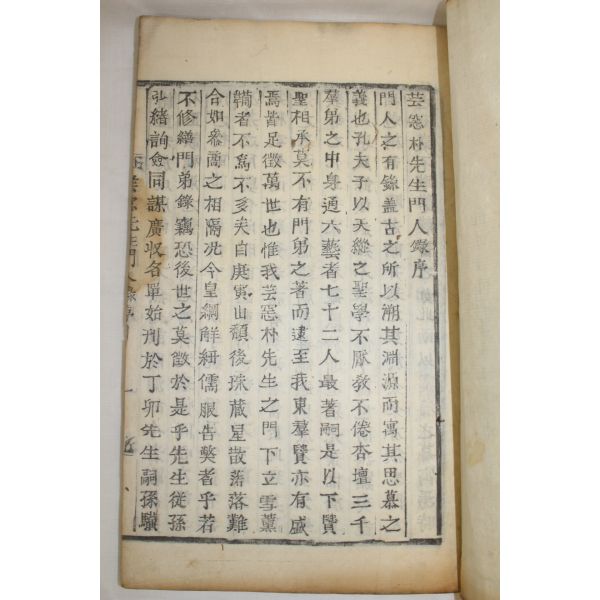 芸窓朴先生門人錄序
門人之有錄盖古之所以溯其淵源而寓其思慕之
義也孔夫子以天縱之聖學不厭敎不倦杏壇三千
羣弟之中身通六藝者七十二人最著嗣是以下賢
聖相承莫不有門弟之著而逮至我東羣賢亦有盛
焉皆足徵萬世也惟我芸窓朴先生之門下立雪薰
備者不爲不多矣自庚寅山頹後珠藏星散落落難
合如叅啇之相隔况今皇綱解紐儒服告獘者乎若
不修繕門弟錄竊恐後世之莫徵於是乎先生從孫
弘緖詢僉同謀廣收名單始刋於丁卯先生嗣孫驥